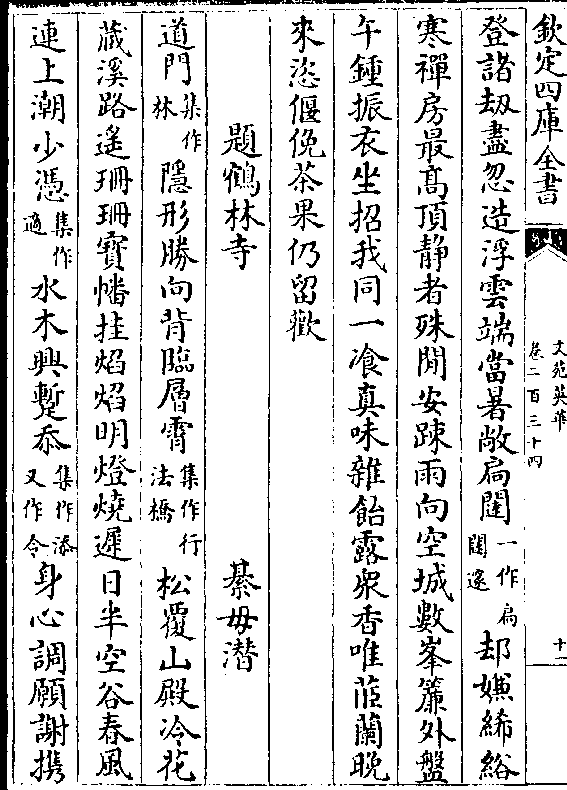 欽定四庫全書
文苑英華
卷二百三十四
十一
登諸劫盡忽造浮雲端當暑敞扃闥一作扃闥邃却嫌絺綌
寒禪房最髙頂靜者殊閒安踈雨向空城數峯簾外盤
午鍾振衣坐招我同一飡真味雜飴露衆香唯茝蘭晚
來恣偃俛茶果仍留歡
題鶴林寺 綦毋潛
道門集作林隱形勝向背臨層霄集作行法橋松覆山殿冷花
藏溪路遙珊珊寶幡挂焰焰明燈燒遲日半空谷春風
連上潮少憑集作適水木興蹔忝集作添又作令身心調願謝携